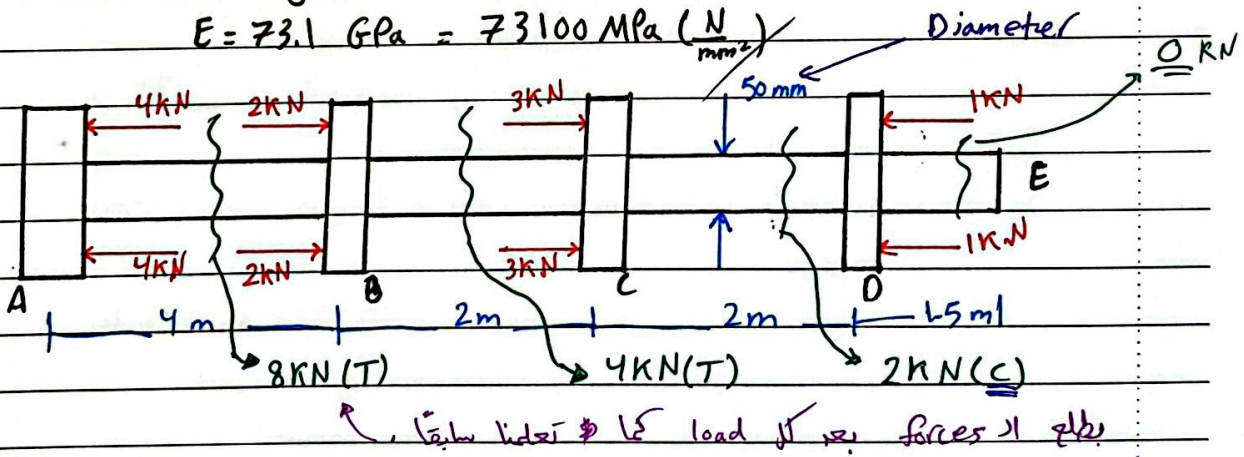 E = 73.1 GPa = 73100 MPa (N/mm²)
Diameter
0 KN
50 mm
4KN 2KN 3KN 1KN
E
4KN 2KN 3KN 1KN
A B C D
4 m 2m 2m 1.5 m
8KN (T) 4KN(T) 2KN (C)
بطلع الـ forces بعد كل load كما تعلمنا سابقاً.